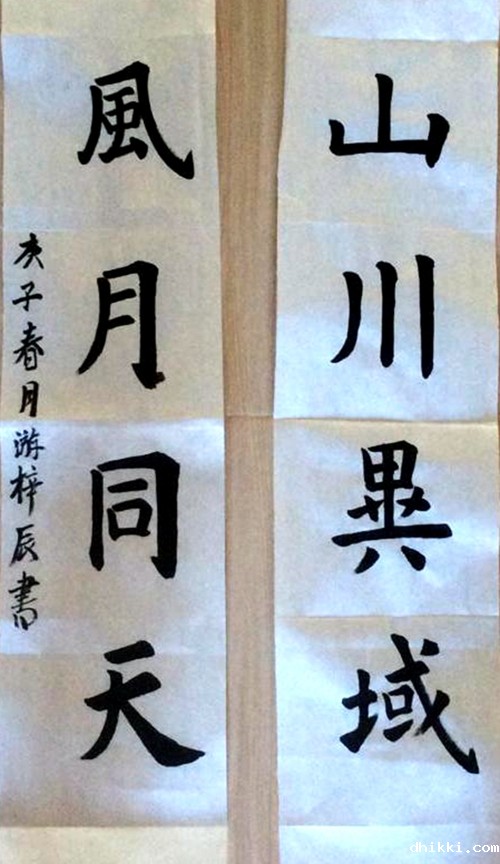 山川異域
風月同天
庚子春月游梓辰書
dhikki.com